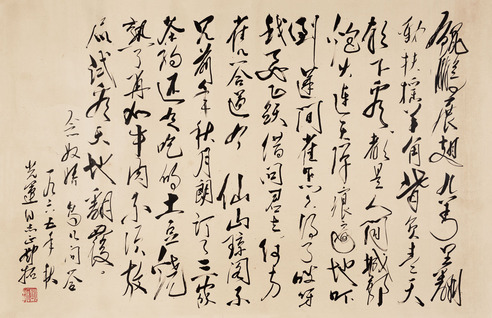 鲲鹏展翅九万里翻
动扶摇羊角背负青天
朝下看都是人间城郭
炮火连天弹痕遍地吓
倒蓬间雀怎么得了哎呀
我要飞跃借问君去何方
雀儿答道有仙山琼阁不
见前年秋月朗订了三家
条约还有吃的土豆烧
熟了再加牛肉不须放
屁试看天地翻覆
念奴娇 鸟儿问答
一九六五年秋
同志正